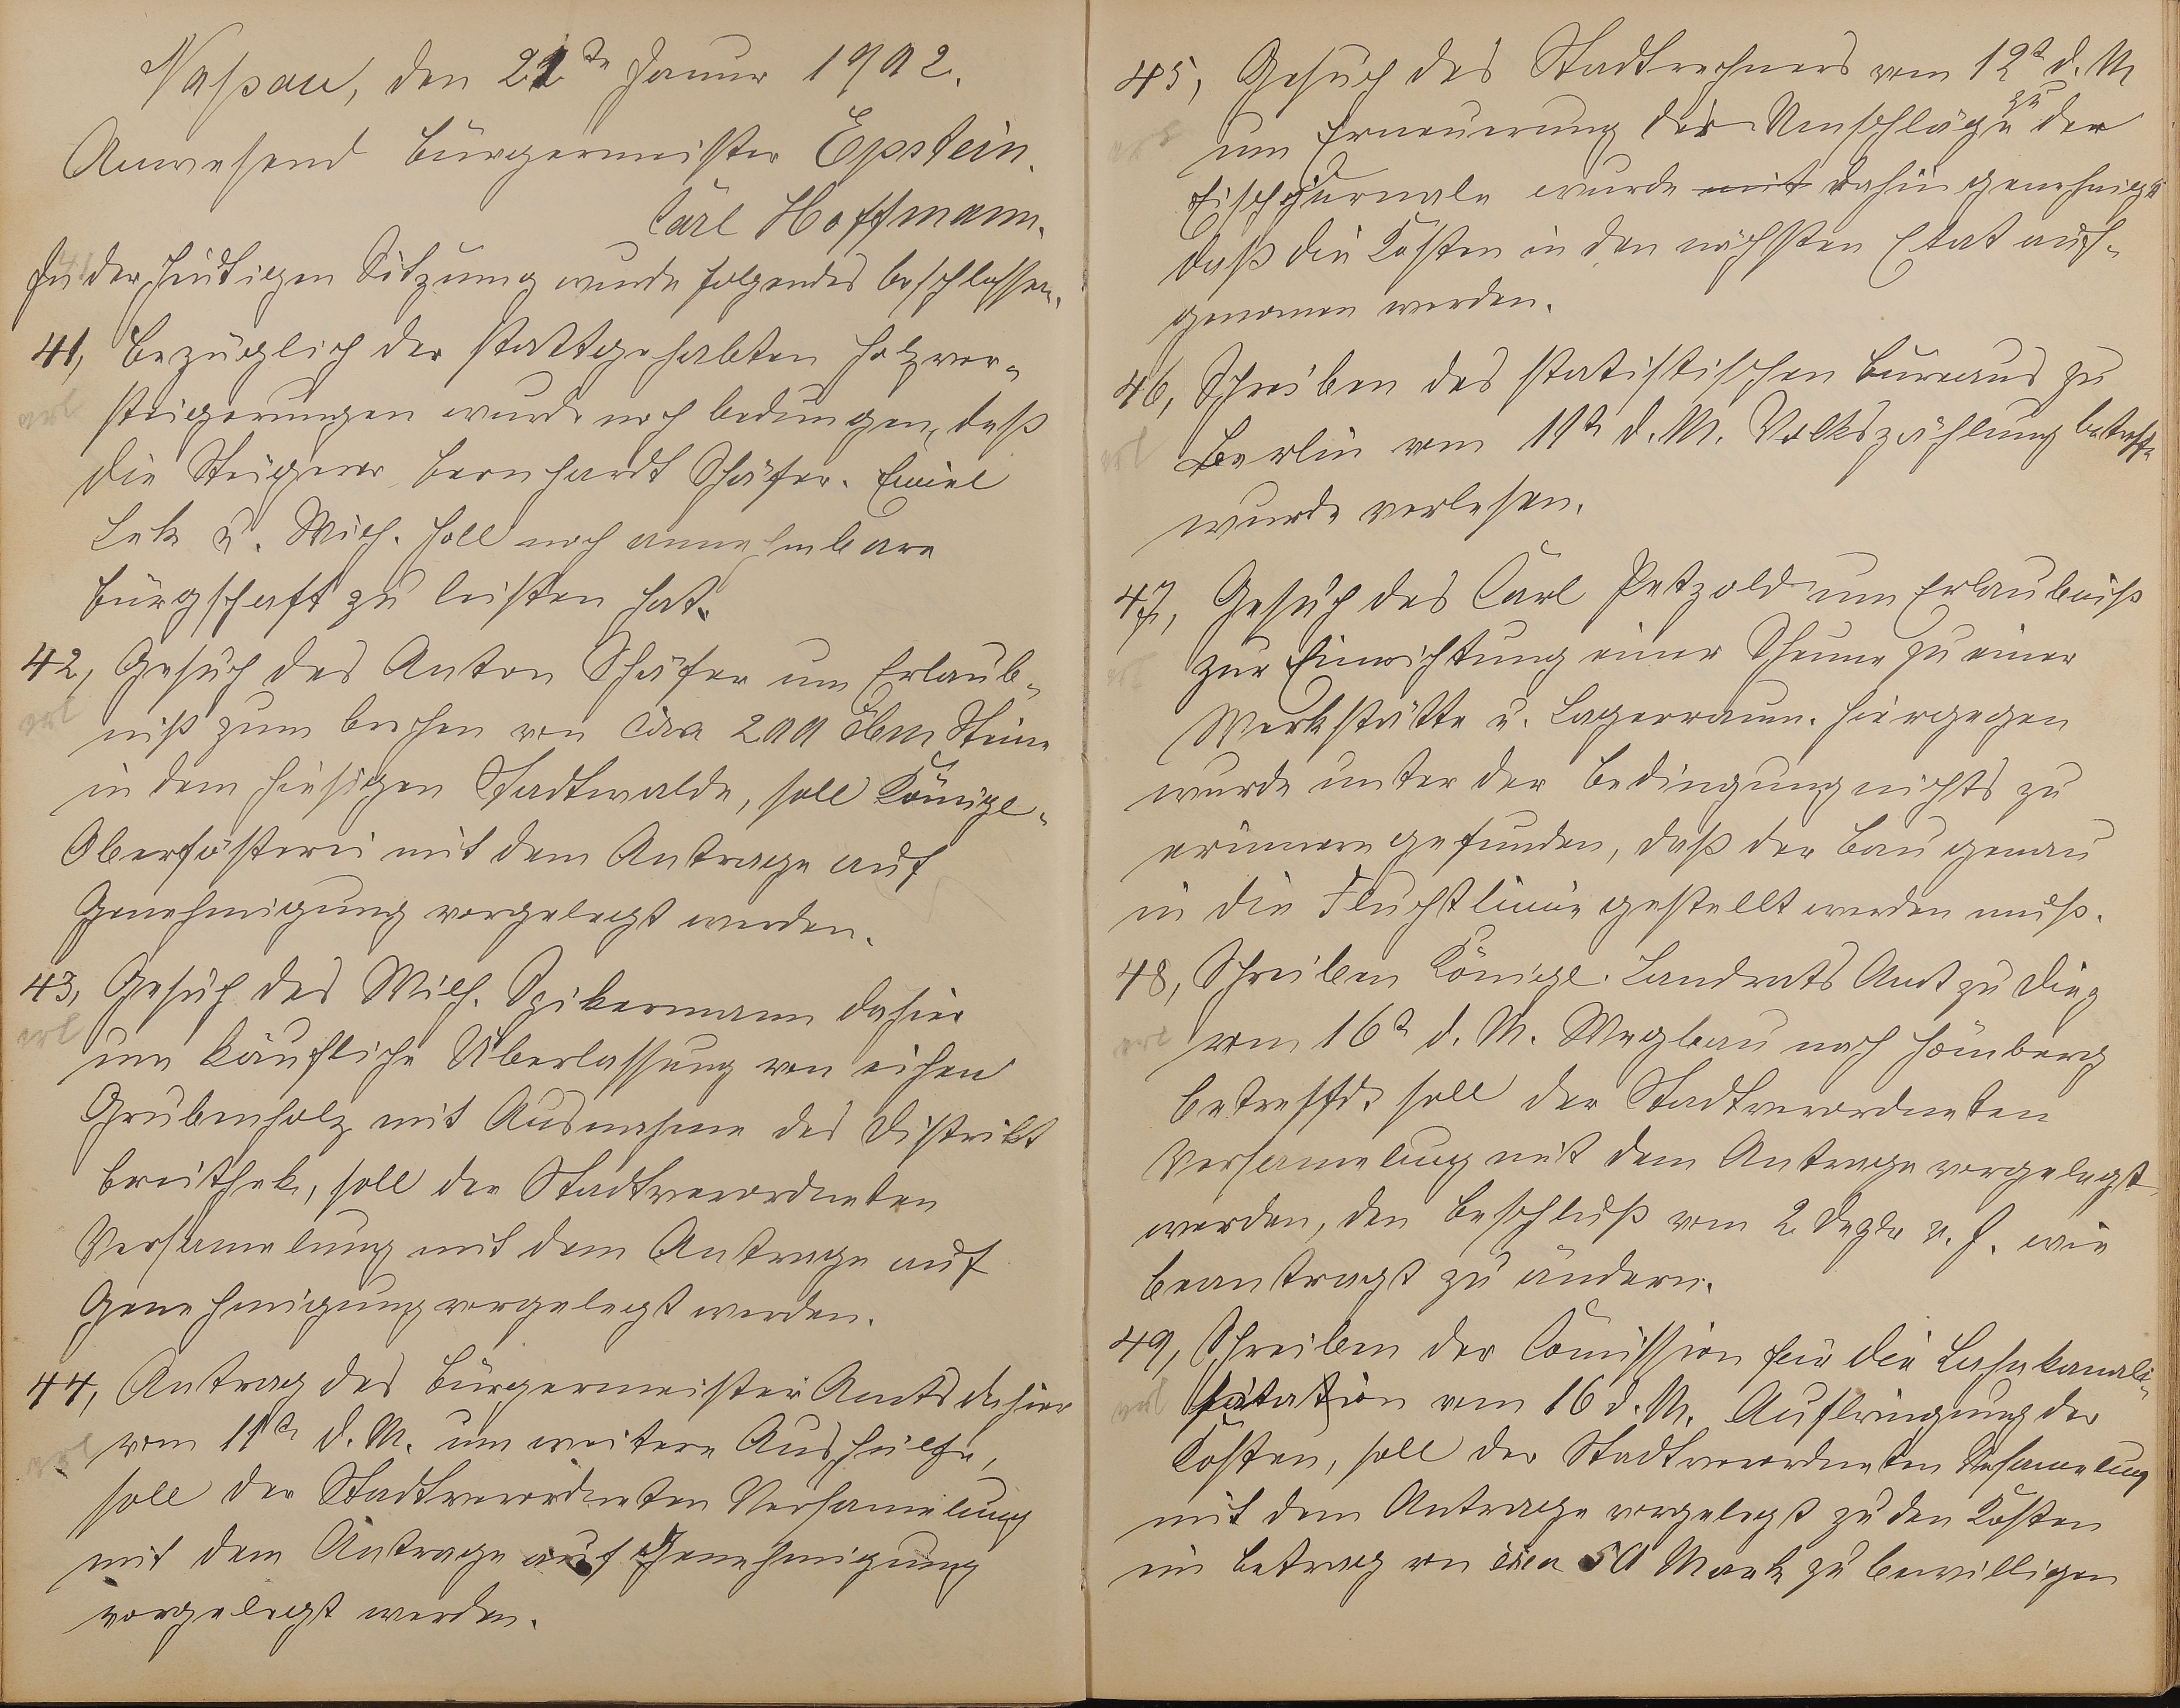 Nassau, den 21te Januar 1902.
Anwesend Bürgermeister Epstein.
Carl Hoffmann.
In der heutigen Sitzung wurde folgendes beschlossen.
41, Bezüglich der stattgehabten Holzver-
steigerungen wurde noch bedungen, daß
die Steigerer Bernhardt Schäfer. Emiel
u. Wilh. Holl noch annehmbare
Bürgschaft zu leisten hat.
42, Gesuch des Anton Schäfer um Erlaub-
niß zum brechen von circa 200 cbm Steine
in dem hiesigen Stadtwalde, soll Königl.
Oberfösterei mit dem Antrage auf
Genehmigung vorgelegt werden.
43, Gesuch des Wilh. Spikermann dahier
um käufliche Überlassung von eichen
Grubenholz mit Ausnahme des Distrikt
soll der Stadtverordneten
Versamelung mit dem Antrage auf
Genehmigung vorgelegt werden.
44, Antrag des Bürgermeister Amts dahier
vom 11te d. M. um weitere Aushülfe,
soll der Stadtverordneten Versamelung
mit dem Antrage auf Genehmigung
vorgelegt werden.
45, Gesuch des Stadtrechners vom 12t d. M
um Erneuerung der Umschläge zu der
wurde mit dahin genehmigt
daß die Kosten in den nächsten Etat auf-
genomen werden.
46, Schreiben des statistischen Bureaus zu
Berlin vom 11te d. M. Volkszählung betreff.
wurde verlesen.
47, Gesuch des Carl Petzold um Erlaubniß
zur Einrichtung einer Scheune zu einer
Werkstätte u. Lagerraum. Hiergegen
wurde unter der Bedingung nichts zu
erinnern gefunden, daß der Bau genau
in die Fluchtlinie gestellt werden muß.
48, Schreiben Königl. Landrats Amt zu Diez
vom 16t d. M. Wegbau nach Hömberg
betreffd. soll der Stadtverordneten
Versamelung mit dem Antrage vorgelegt
werden, den Beschluß vom 2 Dezbr v. J. wie
beantragt zu ändern.
49, Schreiben der Comission für die Lahnkanali-
sation vom 16 d. M. Aufbringung der
Kosten, soll der Stadtverordneten Versamelung
mit dem Antrage vorgelegt zu den Kosten
ein Betrag von circa 50 Mark zu bewilligen